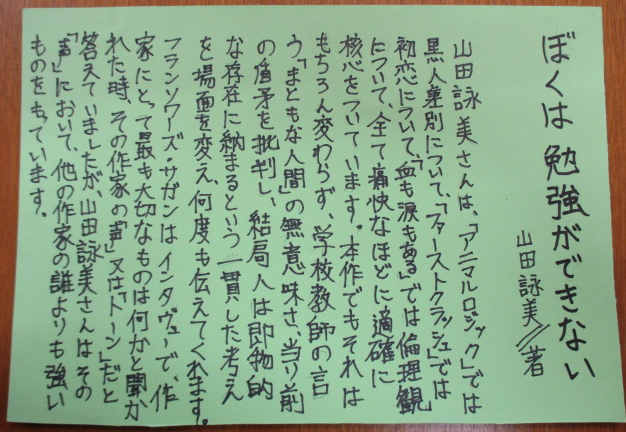 ぼくは勉強ができない
山田詠美//著
山田詠美さんは、「アニマルロジック」では
黒人差別について、「ファーストクラッシュ」では
初恋について、「血も涙もある」では倫理観
について、全て痛快なほどに適確に
核心をついています。本作でもそれは
もちろん変わらず、学校教師の言
う、「まともな人間」の無意味さ、当り前
の盾矛を批判し、結局人は即物的
な存在に納まるという一貫した考え
を場面を変え、何度も伝えてくれます。
フランソワーズ・サガンはインタヴューで、作
家にとって最も大切なものは何かと聞か
れた時、その作家の「声」又は「トーン」だと
答えていましたが、山田詠美さんはその
「声」において、他の作家の誰よりも強い
ものをもっています。